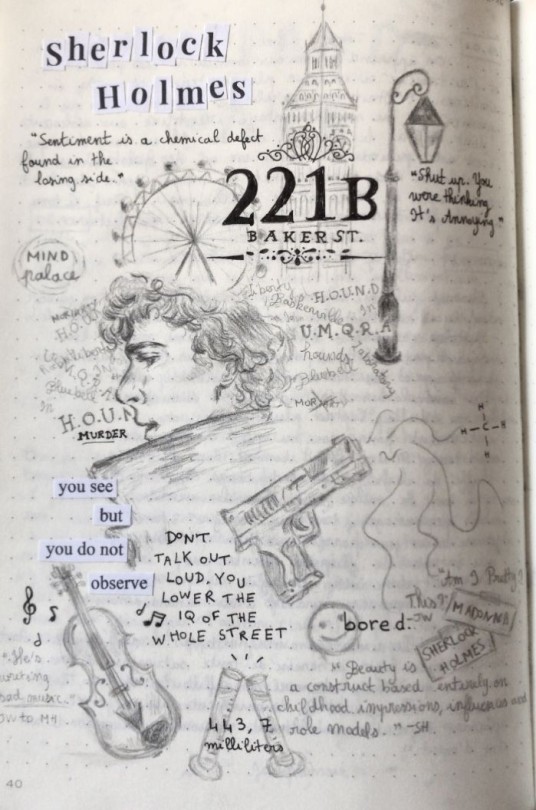 Sherlock
Holmes
"Sentiment is a chemical defect
found in the
losing side."
221B
BAKER ST.
"Shut up. You
were thinking.
It's Annoying"
MIND
palace
MORIARTY
H.O.U.N.D
Liberty
Baskerville
In
H.O.U.N.D
U.M.Q.R.A
hounds
Laboratory
Bluebell
Bluebell
In
H.O.U.N
MURDER
you see
but
you do not
observe
DON'T
TALK OUT
LOUD. YOU
LOWER THE
IQ OF THE
WHOLE STREET
H
H C H
H
"Am I Pretty?
This?"
-JW
MADONNA
SHERLOCK
HOLMES
bored
"He's
writing
sad music."
JW to MH
443,7
milliliters
"Beauty is
a construct based entirely on
childhood impressions, influences and
role models." -SH
40